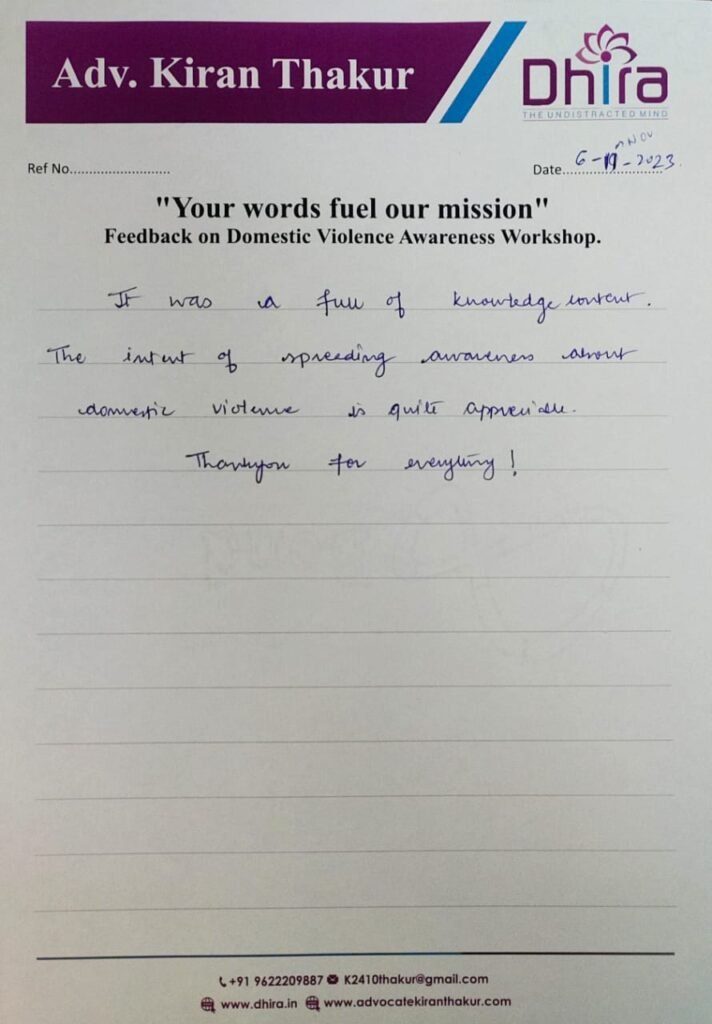 Adv. Kiran Thakur
Dhira
THE UNDISTRACTED MIND
Nov
Ref No.......................... Date 6-11-2023
"Your words fuel our mission"
Feedback on Domestic Violence Awareness Workshop.
It was a full of knowledge content.
The intent of spreeding awareness about
domestic violence is quite appreciable.
Thankyou for everything!
+91 9622209887 K2410thakur@gmail.com
www.dhira.in www.advocatekiranthakur.com